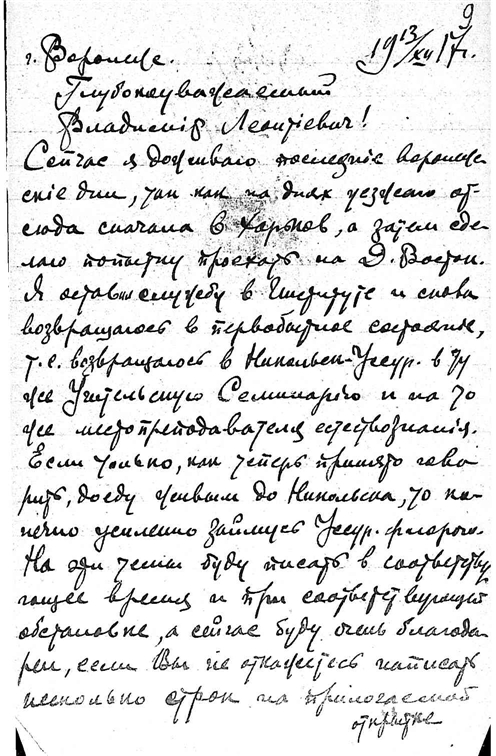 9
г. Воронеж. 19 13/XII 17 г.
Глубокоуважаемый
Владимір Леонтіевич!
Сейчас я доживаю последніе воронеж-
скіе дни, так как на днях уезжаю от-
сюда сначала в Харьков, а затем сде-
лаю попытку проехать на Д. Восток.
Я оставил службу в Институте и снова
возвращаюсь в первобытное состояніе,
т.е. возвращаюсь в Никольск-Уссур. в ту
же Учительскую Семинарію и на то
же место преподавателя естествознанія.
Если только, как теперь принято гово-
рить, доеду живым до Никольска, то ко-
нечно усиленно займусь Уссур. флорой.
На эти темы буду писать в соответству-
ющее время и при соответствующей
обстановке, а сейчас буду очень благода-
рен, если Вы не откажетесь написать
несколько строк на прилогаемой
открытке